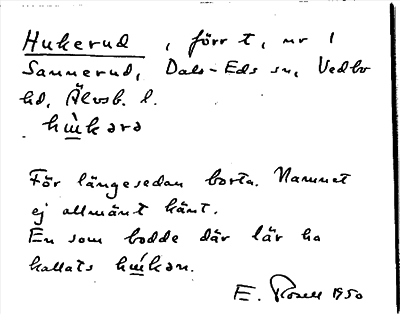 Hukerud, förr t, nr 1
Sannerud, Dals-Eds sn, Vedbo
hd, Älvsb. l.
hɯ̀kərə
För längesedan borta. Namnet
ej allmänt känt.
En som bodde där lär ha
kallats hɯ́kən.
E. Rosell 1950